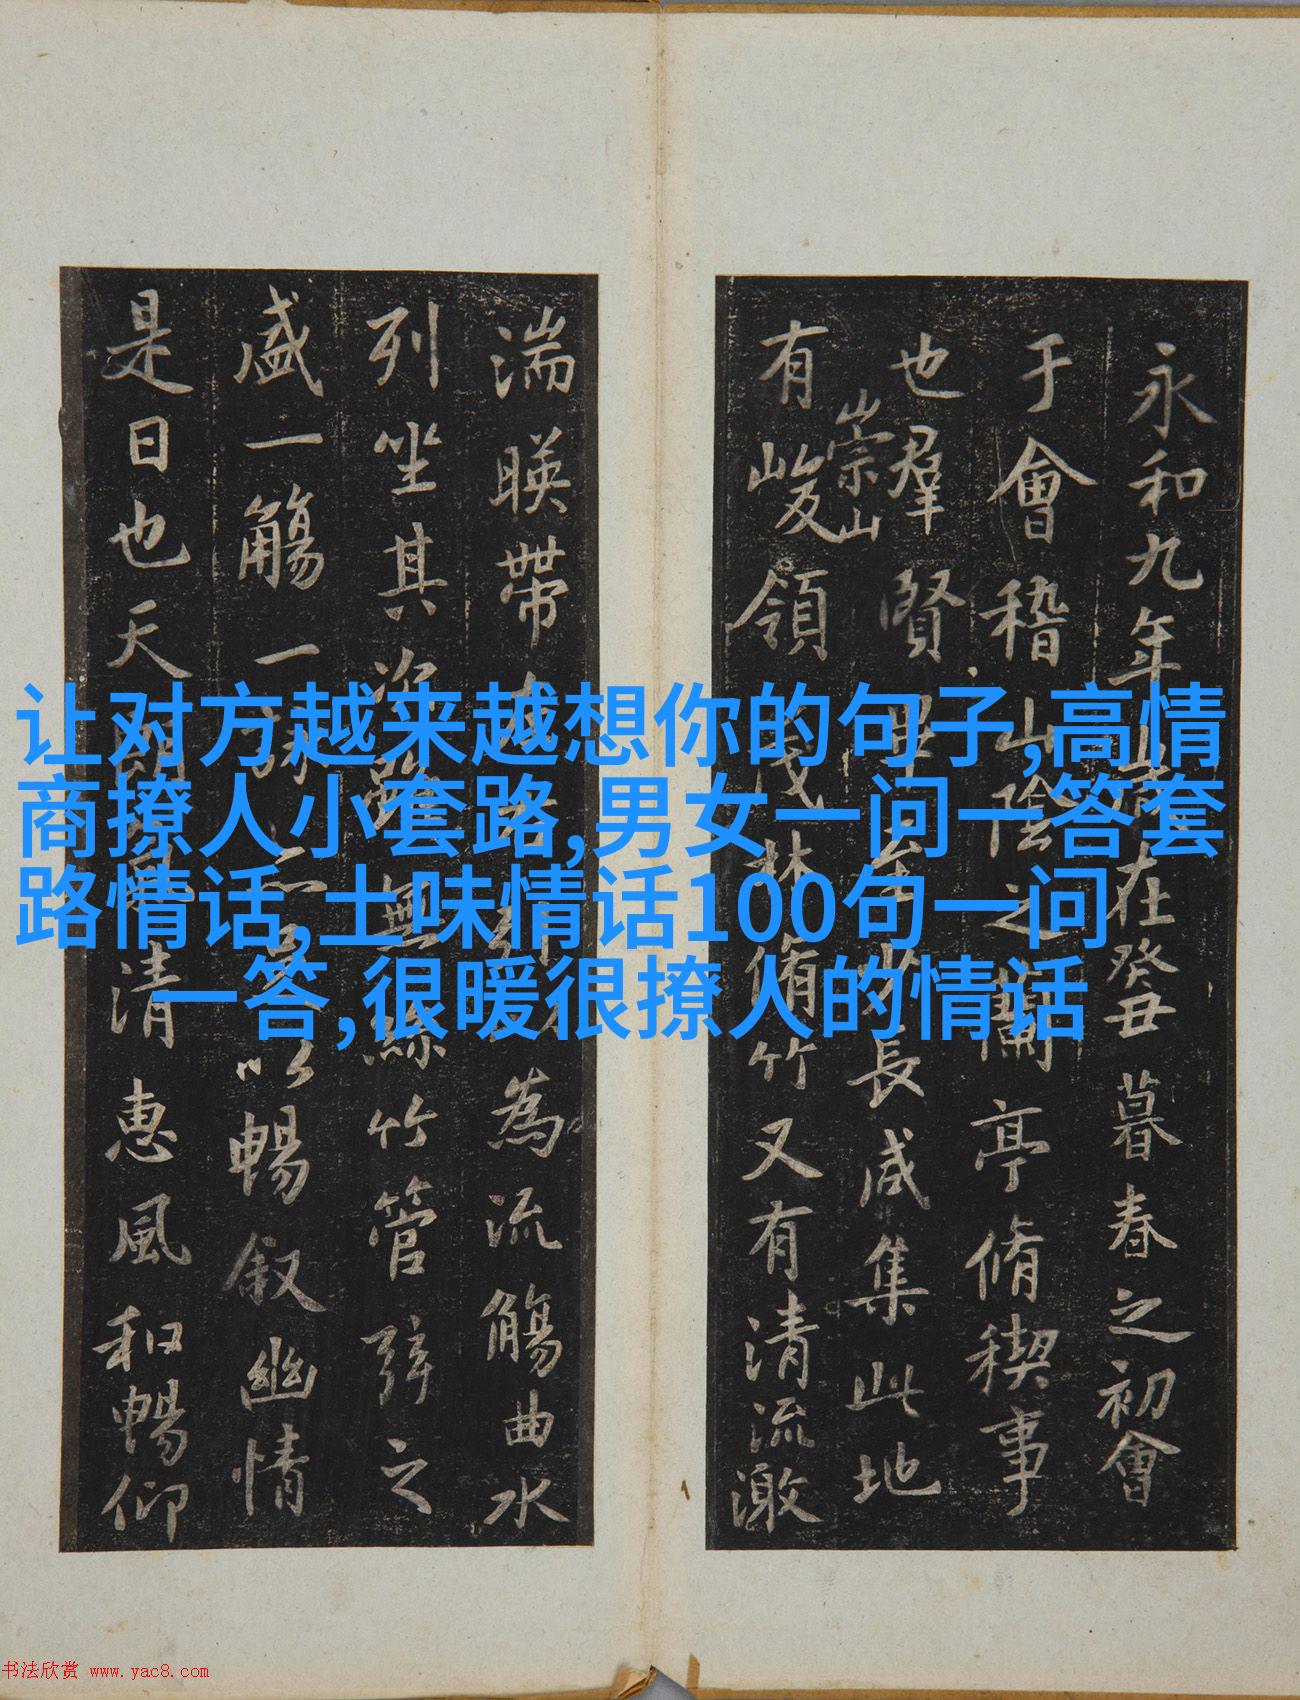 永和九年歲在癸丑暮春之初會
于會稽山陰之蘭亭脩稧事
也羣賢畢至少長咸集此地
有崇山峻領茂林脩竹又有清流激
湍暎帶左右
為流觴曲水
列坐其次雖無絲竹管弦之
盛一觴一詠亦足以暢叙幽情
是日也天朗氣清惠風和暢仰
让对方越来越想你的句子,高情
商撩人小套路,男女一问一答套
路情话,土味情话100句一问
一答,很暖很撩人的情话
书法欣赏 www.yac8.com